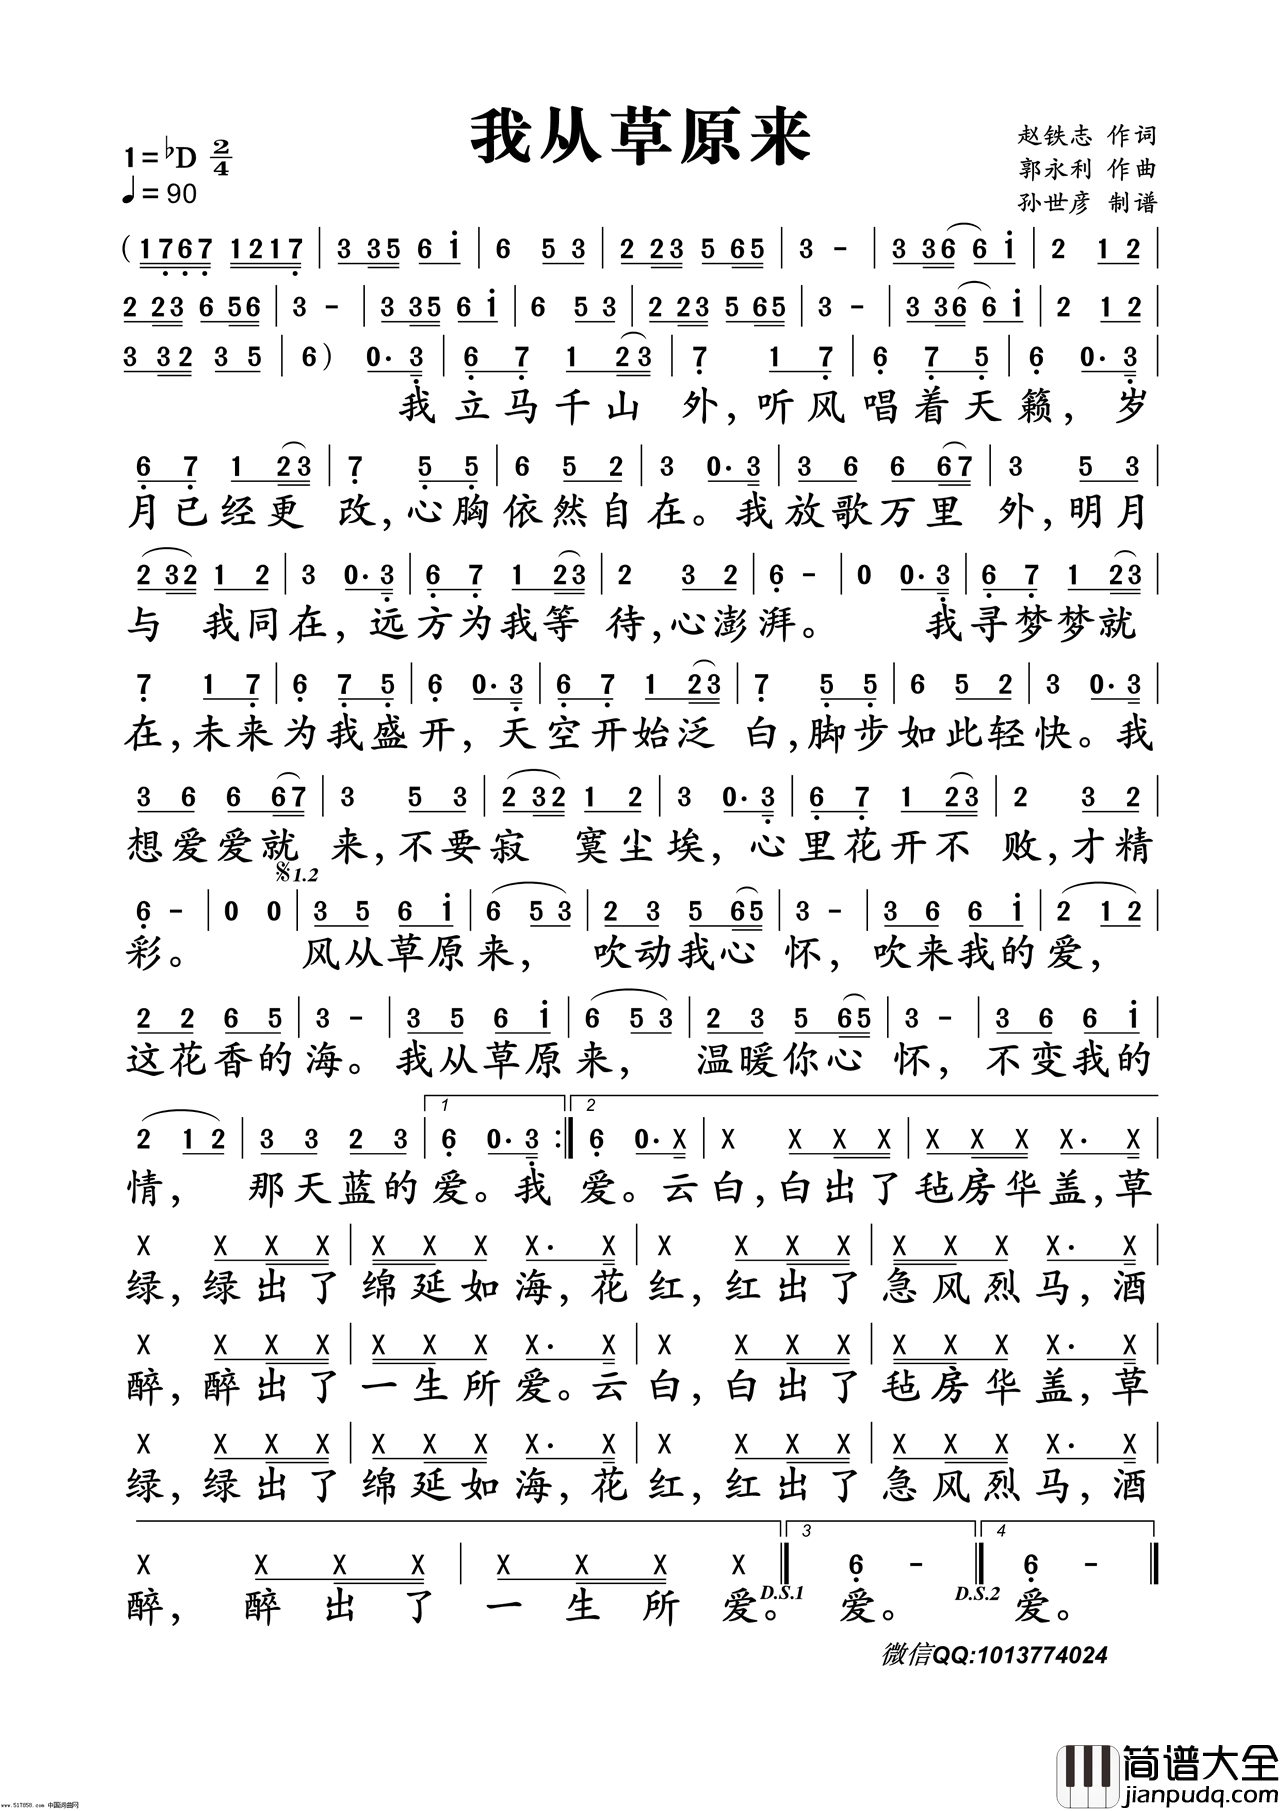 我从草原来
1=♭D 2/4
♩=90
赵铁志 作词
郭永利 作曲
孙世彦 制谱
( 1767 1217 | 3 35 6 i | 6 5 3 | 2 23 5 65 | 3 - | 3 36 6 i | 2 1 2 |
2 23 6 56 | 3 - | 3 35 6 i | 6 5 3 | 2 23 5 65 | 3 - | 3 36 6 i | 2 1 2 |
3 32 3 5 | 6 ) 0· 3 | 6 7 1 23 | 7 1 7 | 6 7 5 | 6 0· 3 |
我立马千山 外,听风唱着天籁, 岁
6 7 1 23 | 7 5 5 | 6 5 2 | 3 0· 3 | 3 6 6 67 | 3 5 3 |
月已经更 改,心胸依然自在。我放歌万里 外,明月
2 32 1 2 | 3 0· 3 | 6 7 1 23 | 2 3 2 | 6 - | 0 0· 3 | 6 7 1 23 |
与 我同在, 远方为我等 待,心澎湃。 我寻梦梦就
7 1 7 | 6 7 5 | 6 0· 3 | 6 7 1 23 | 7 5 5 | 6 5 2 | 3 0· 3 |
在,未来为我盛开, 天空开始泛 白,脚步如此轻快。我
3 6 6 67 | 3 5 3 | 2 32 1 2 | 3 0· 3 | 6 7 1 23 | 2 3 2 |
想爱爱就 来,不要寂 寞尘埃, 心里花开不 败,才精
𝄋1.2
6 - | 0 0 | 3 5 6 i | 6 5 3 | 2 3 5 65 | 3 - | 3 6 6 i | 2 1 2 |
彩。 风从草原来, 吹动我心 怀, 吹来我的爱,
2 2 6 5 | 3 - | 3 5 6 i | 6 5 3 | 2 3 5 65 | 3 - | 3 6 6 i |
这花香的海。我从草原来, 温暖你心 怀, 不变我的
1 2
2 1 2 | 3 3 2 3 | 6 0· 3 :‖ 6 0· X | X X X X | X X X X· X |
情, 那天蓝的爱。我 爱。云白,白出了毡房华盖,草
X X X X | X X X X· X | X X X X | X X X X· X |
绿,绿出了绵延如海,花红,红出了急风烈马,酒
X X X X | X X X X· X | X X X X | X X X X· X |
醉,醉出了一生所爱。云白,白出了毡房华盖,草
X X X X | X X X X· X | X X X X | X X X X· X |
绿,绿出了绵延如海,花红,红出了急风烈马,酒
3 4
X X X X | X X X X ‖ 6 - ‖ 6 - ‖
D.S.1 D.S.2
醉, 醉出了一生所爱。 爱。 爱。
微信QQ:1013774024
简谱大全
jianpudq.com
www.517858.com 中国词曲网